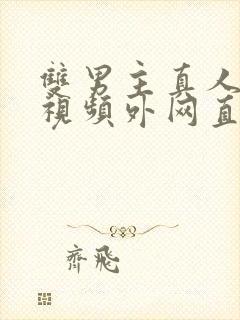 雙男主真人
視頻外网直
齊飛